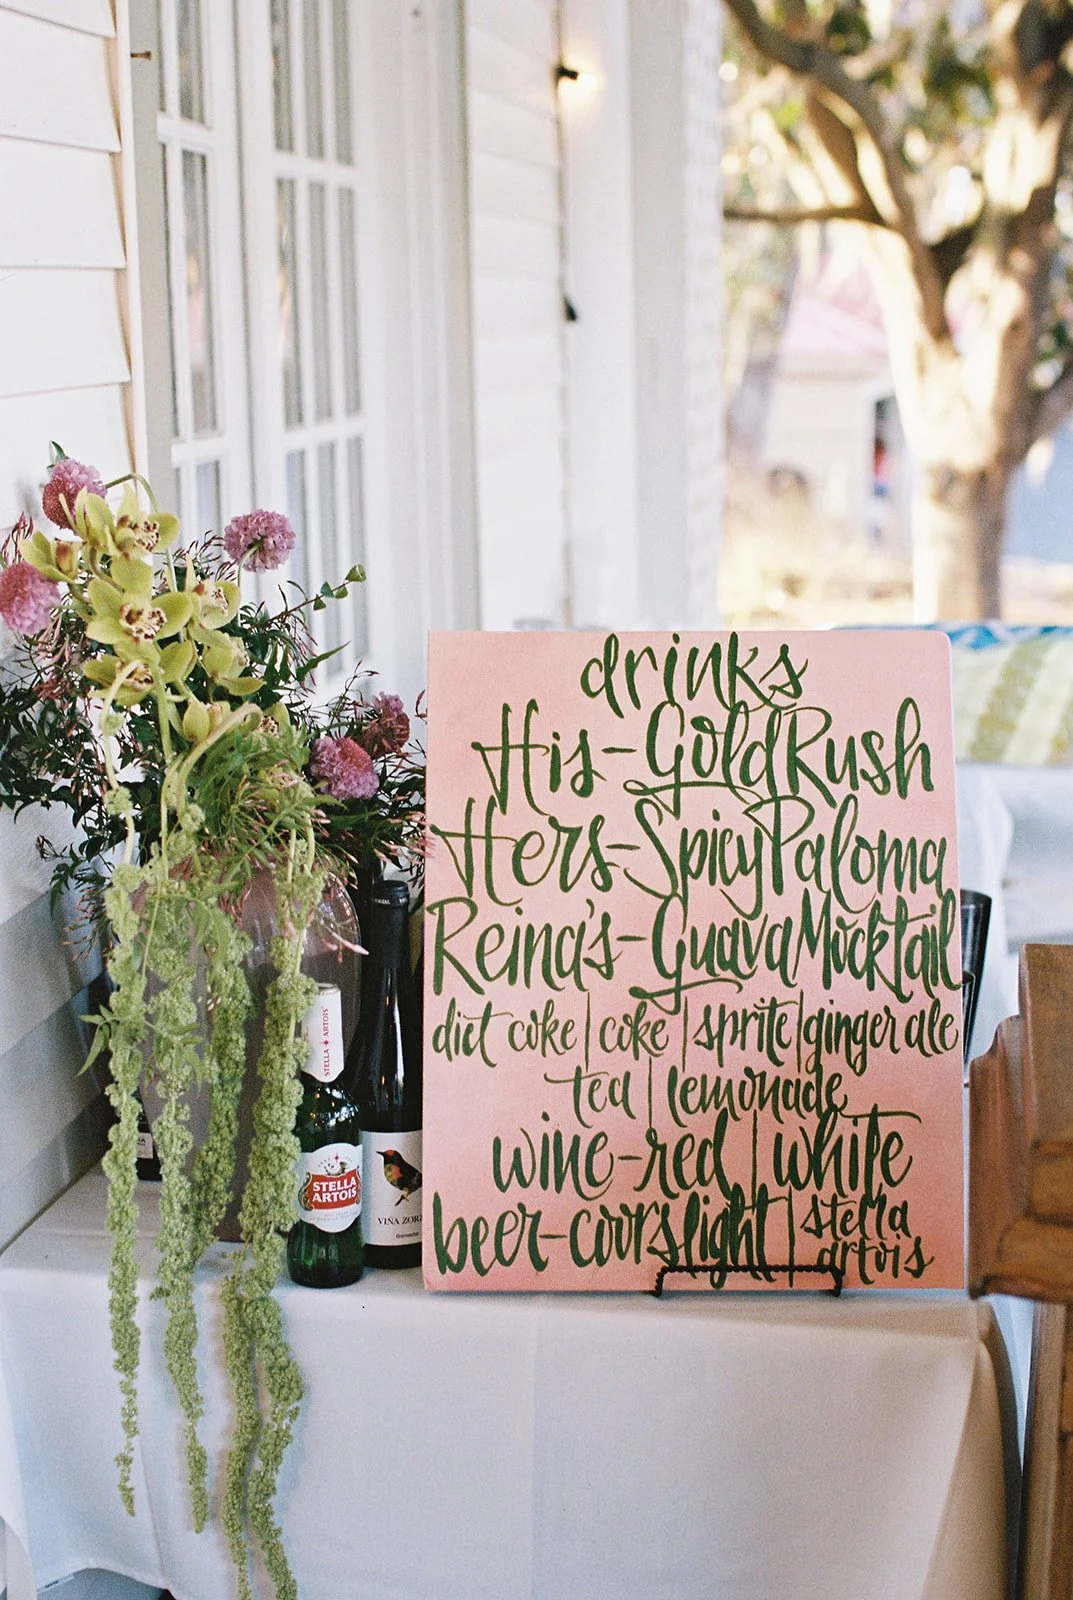 drinks
His-Gold Rush
Hers-Spicy Paloma
Reina's-Guava Mocktail
diet coke | coke | sprite | ginger ale
tea | lemonade
wine-red | white
beer-coors light | stella artois
STELLA ARTOIS
STELLA
ARTOIS
VIÑA ZOR
Garnacha